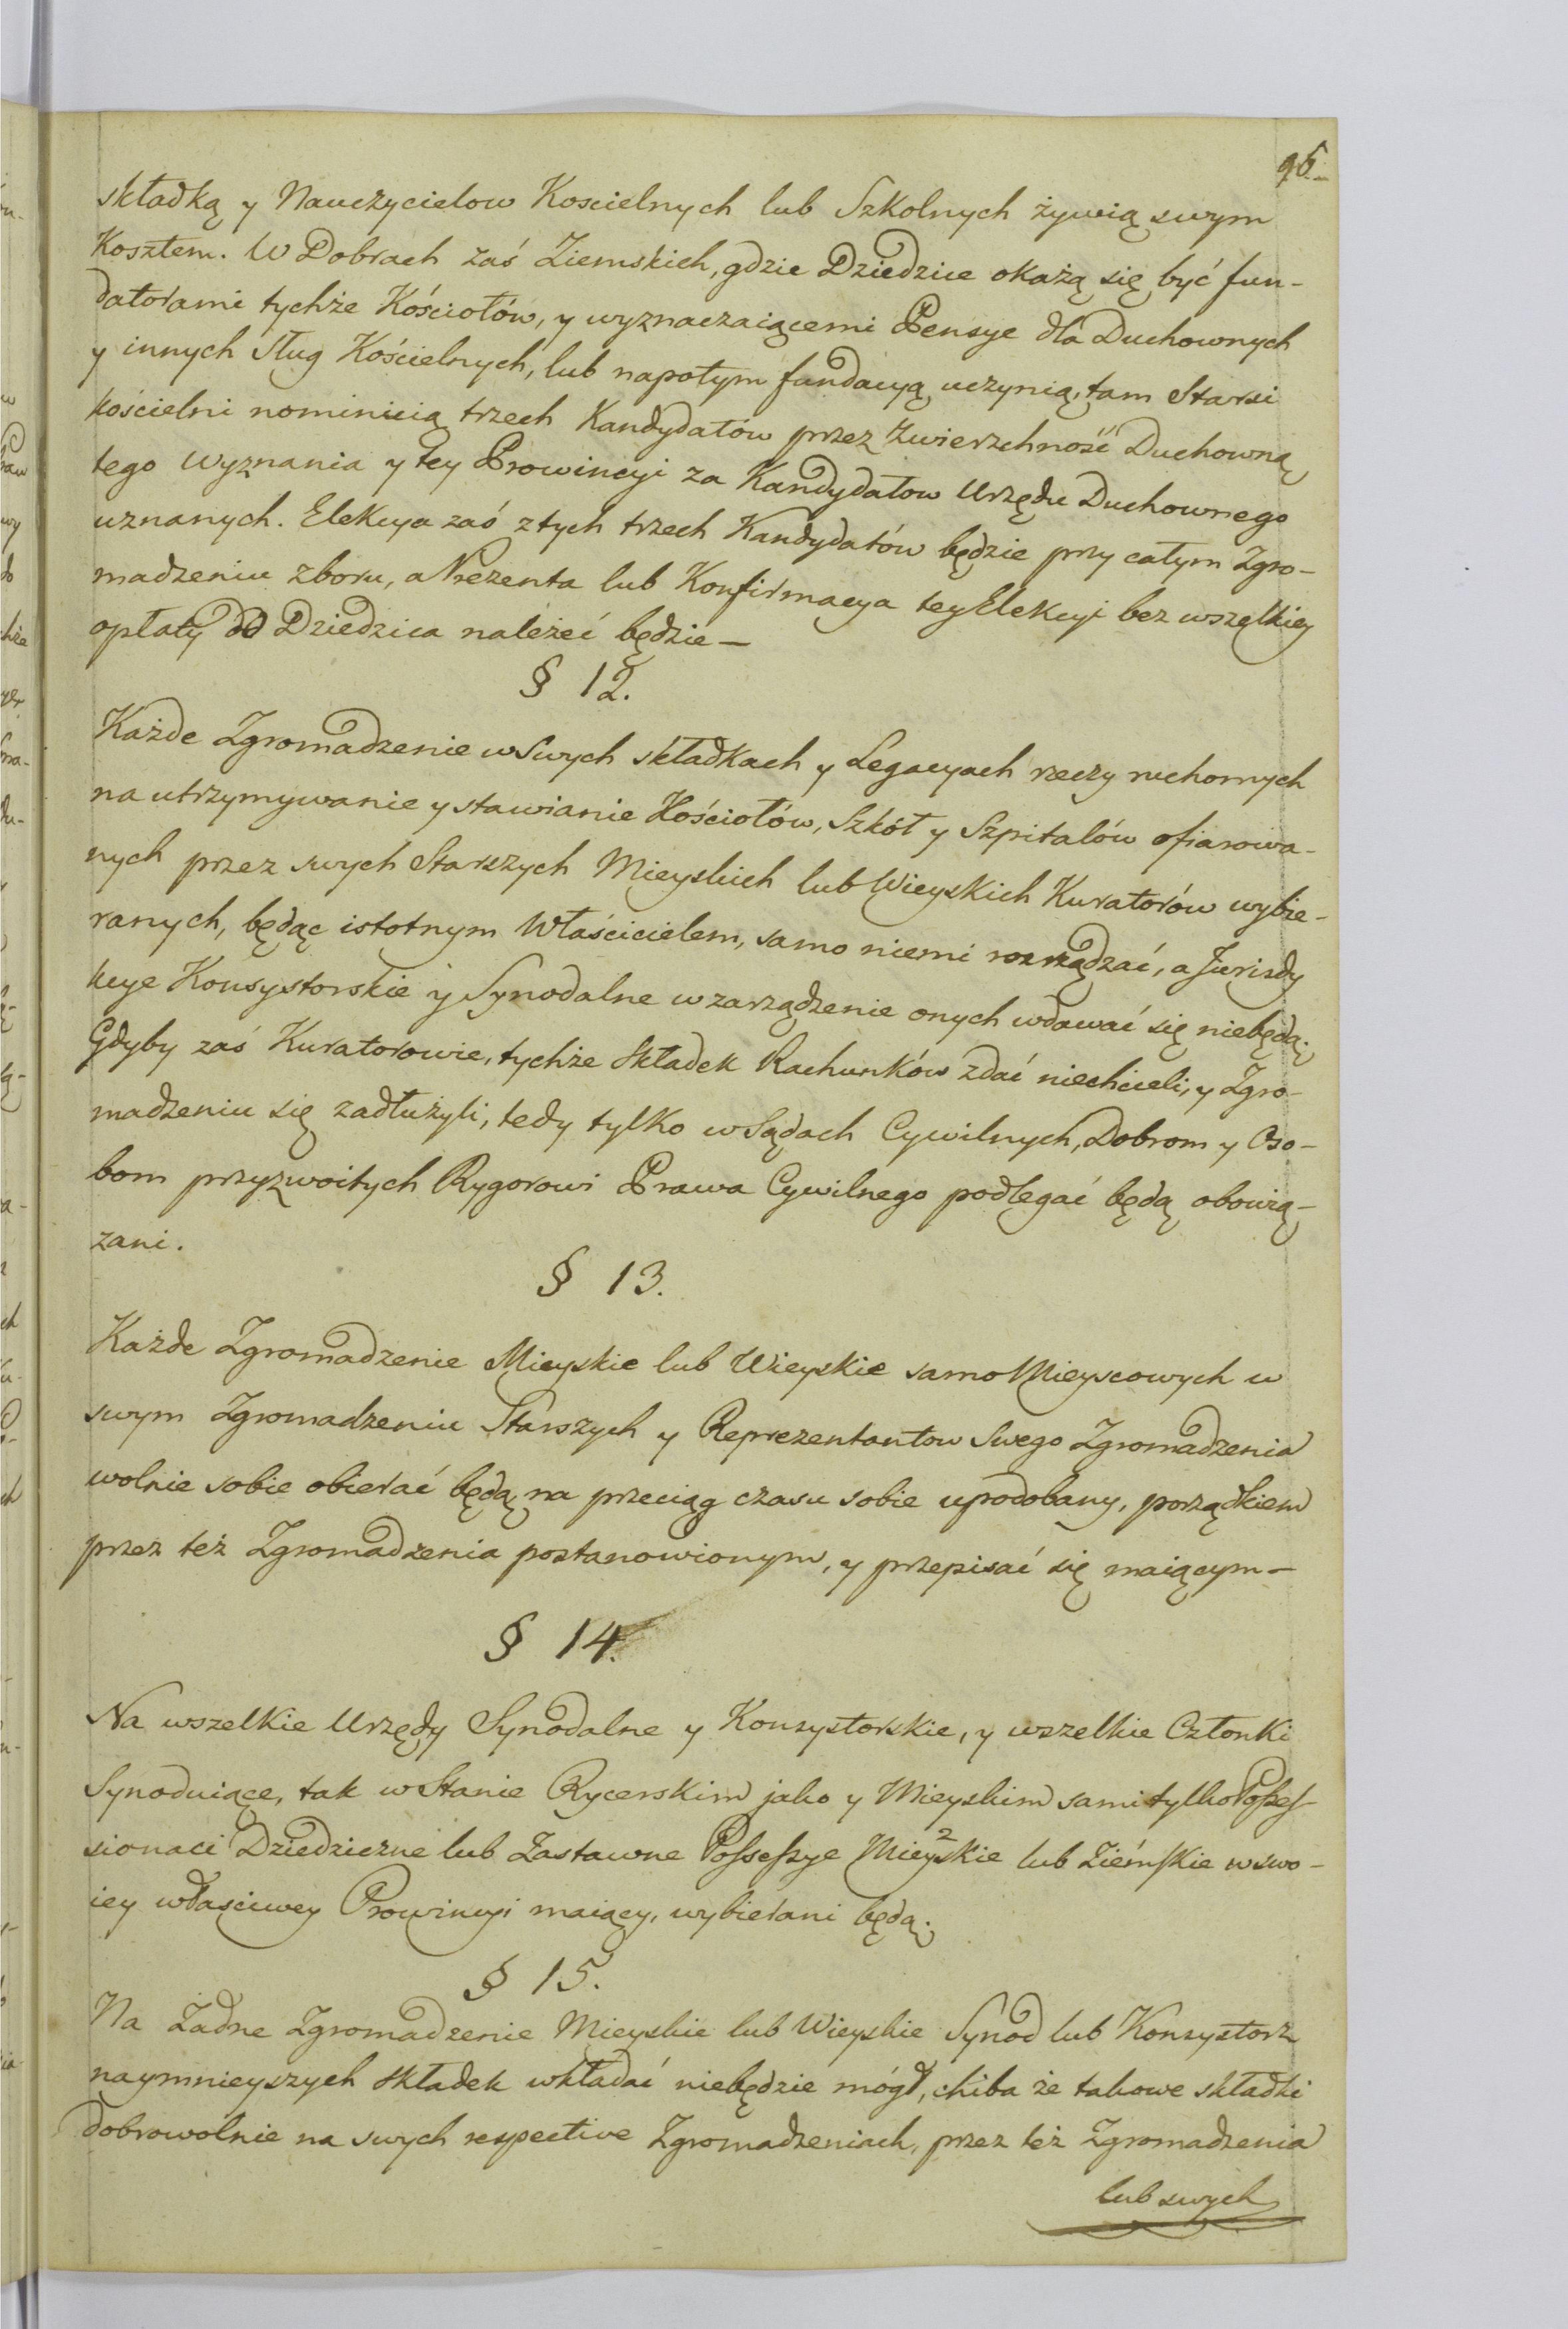 95.
składką y Nauczycielow Koscielnych lub Szkolnych żywią swym
Kosztem. W Dobrach zaś Ziemskich, gdzie Dziedzice okażą się być fun-
datorami tychże Kościołów, y wyznaczaiącemi Pensye dla Duchownych
y innych sług Kościelnych, lub napotym fundacyą uczynią, tam Starsi
kościelni nominuią trzech Kandydatów przez Zwierzchność Duchowną
tego wyznania y tey Prowincyi za Kandydatow Urzędu Duchownego
uznanych. Elekcya zaś z tych trzech Kandydatów będzie przy całym Zgro-
madzeniu zboru, a Prezenta lub Konfirmacya tey Elekcyi bez wszelkiey
opłaty do Dziedzica należeć będzie —
§ 12.
Każde Zgromadzenie w swych składkach y Legacyach rzeczy ruchomych
na utrzymywanie y stawianie Kościołów, Szkół y Szpitalów ofiarowa-
nych przez swych Starszych Mieyskich lub Wieyskich Kuratorów wybie-
ranych, będąc istotnym Właścicielem, samo niemi rozrządzać, a Jurisdy
kcye Konsystorskie y Synodalne w zarządzenie onych wdawać się niebędą;
Gdyby zaś Kuratorowie, tychże Składek Rachunków zdać niechcieli, y Zgro-
madzeniu się zadłużyli, tedy tylko w Sądach Cywilnych, Dobrom y Oso-
bom przyzwoitych Rygorowi Prawa Cywilnego podlegać będą obowią-
zani.
§ 13.
Każde Zgromadzenie Mieyskie lub Wieyskie samo Mieyscowych w
swym Zgromadzeniu Starszych y Reprezentantow Swego Zgromadzenia
wolnie sobie obierać będą na przeciąg czasu sobie upodobany, porządkiem
przez też Zgromadzenia postanowionym, y przepisać się maiącym —
§ 14.
Na wszelkie Urzędy Synodalne y Konsystorskie, y wszelkie Członki
Synoduiące, tak w Stanie Rycerskim jako y Mieyskim sami tylko Posses-
sionaci Dziedziczne lub Zastawne Possessye Mieyskie lub Ziemskie w swo-
iey właściwey Prowincyi maiący, wybierani będą.
§ 15.
Na Żadne Zgromadzenie Mieyskie lub Wieyskie Synod lub Konsystorz
naymnieyszych składek wkładać niebędzie mógł, chiba że takowe składki
dobrowolnie na swych respective Zgromadzeniach, przez też Zgromadzenia
lub swych